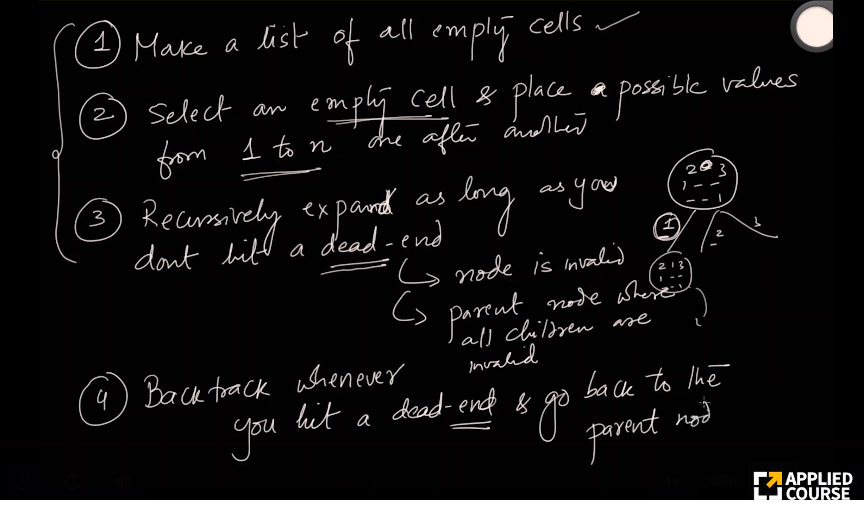 1 Make a list of all empty cells ✓
2 Select an empty cell & place a possible values
from 1 to n one after another
3 Recursively expand as long as you
dont hit a dead-end
↳ node is invalid
↳ parent node where
all children are
invalid
2 3
1 - -
- - 1
1
2
3
2 1 3
1 - -
- - 1
4 Backtrack whenever
you hit a dead-end & go back to the
parent nod
APPLIED
COURSE